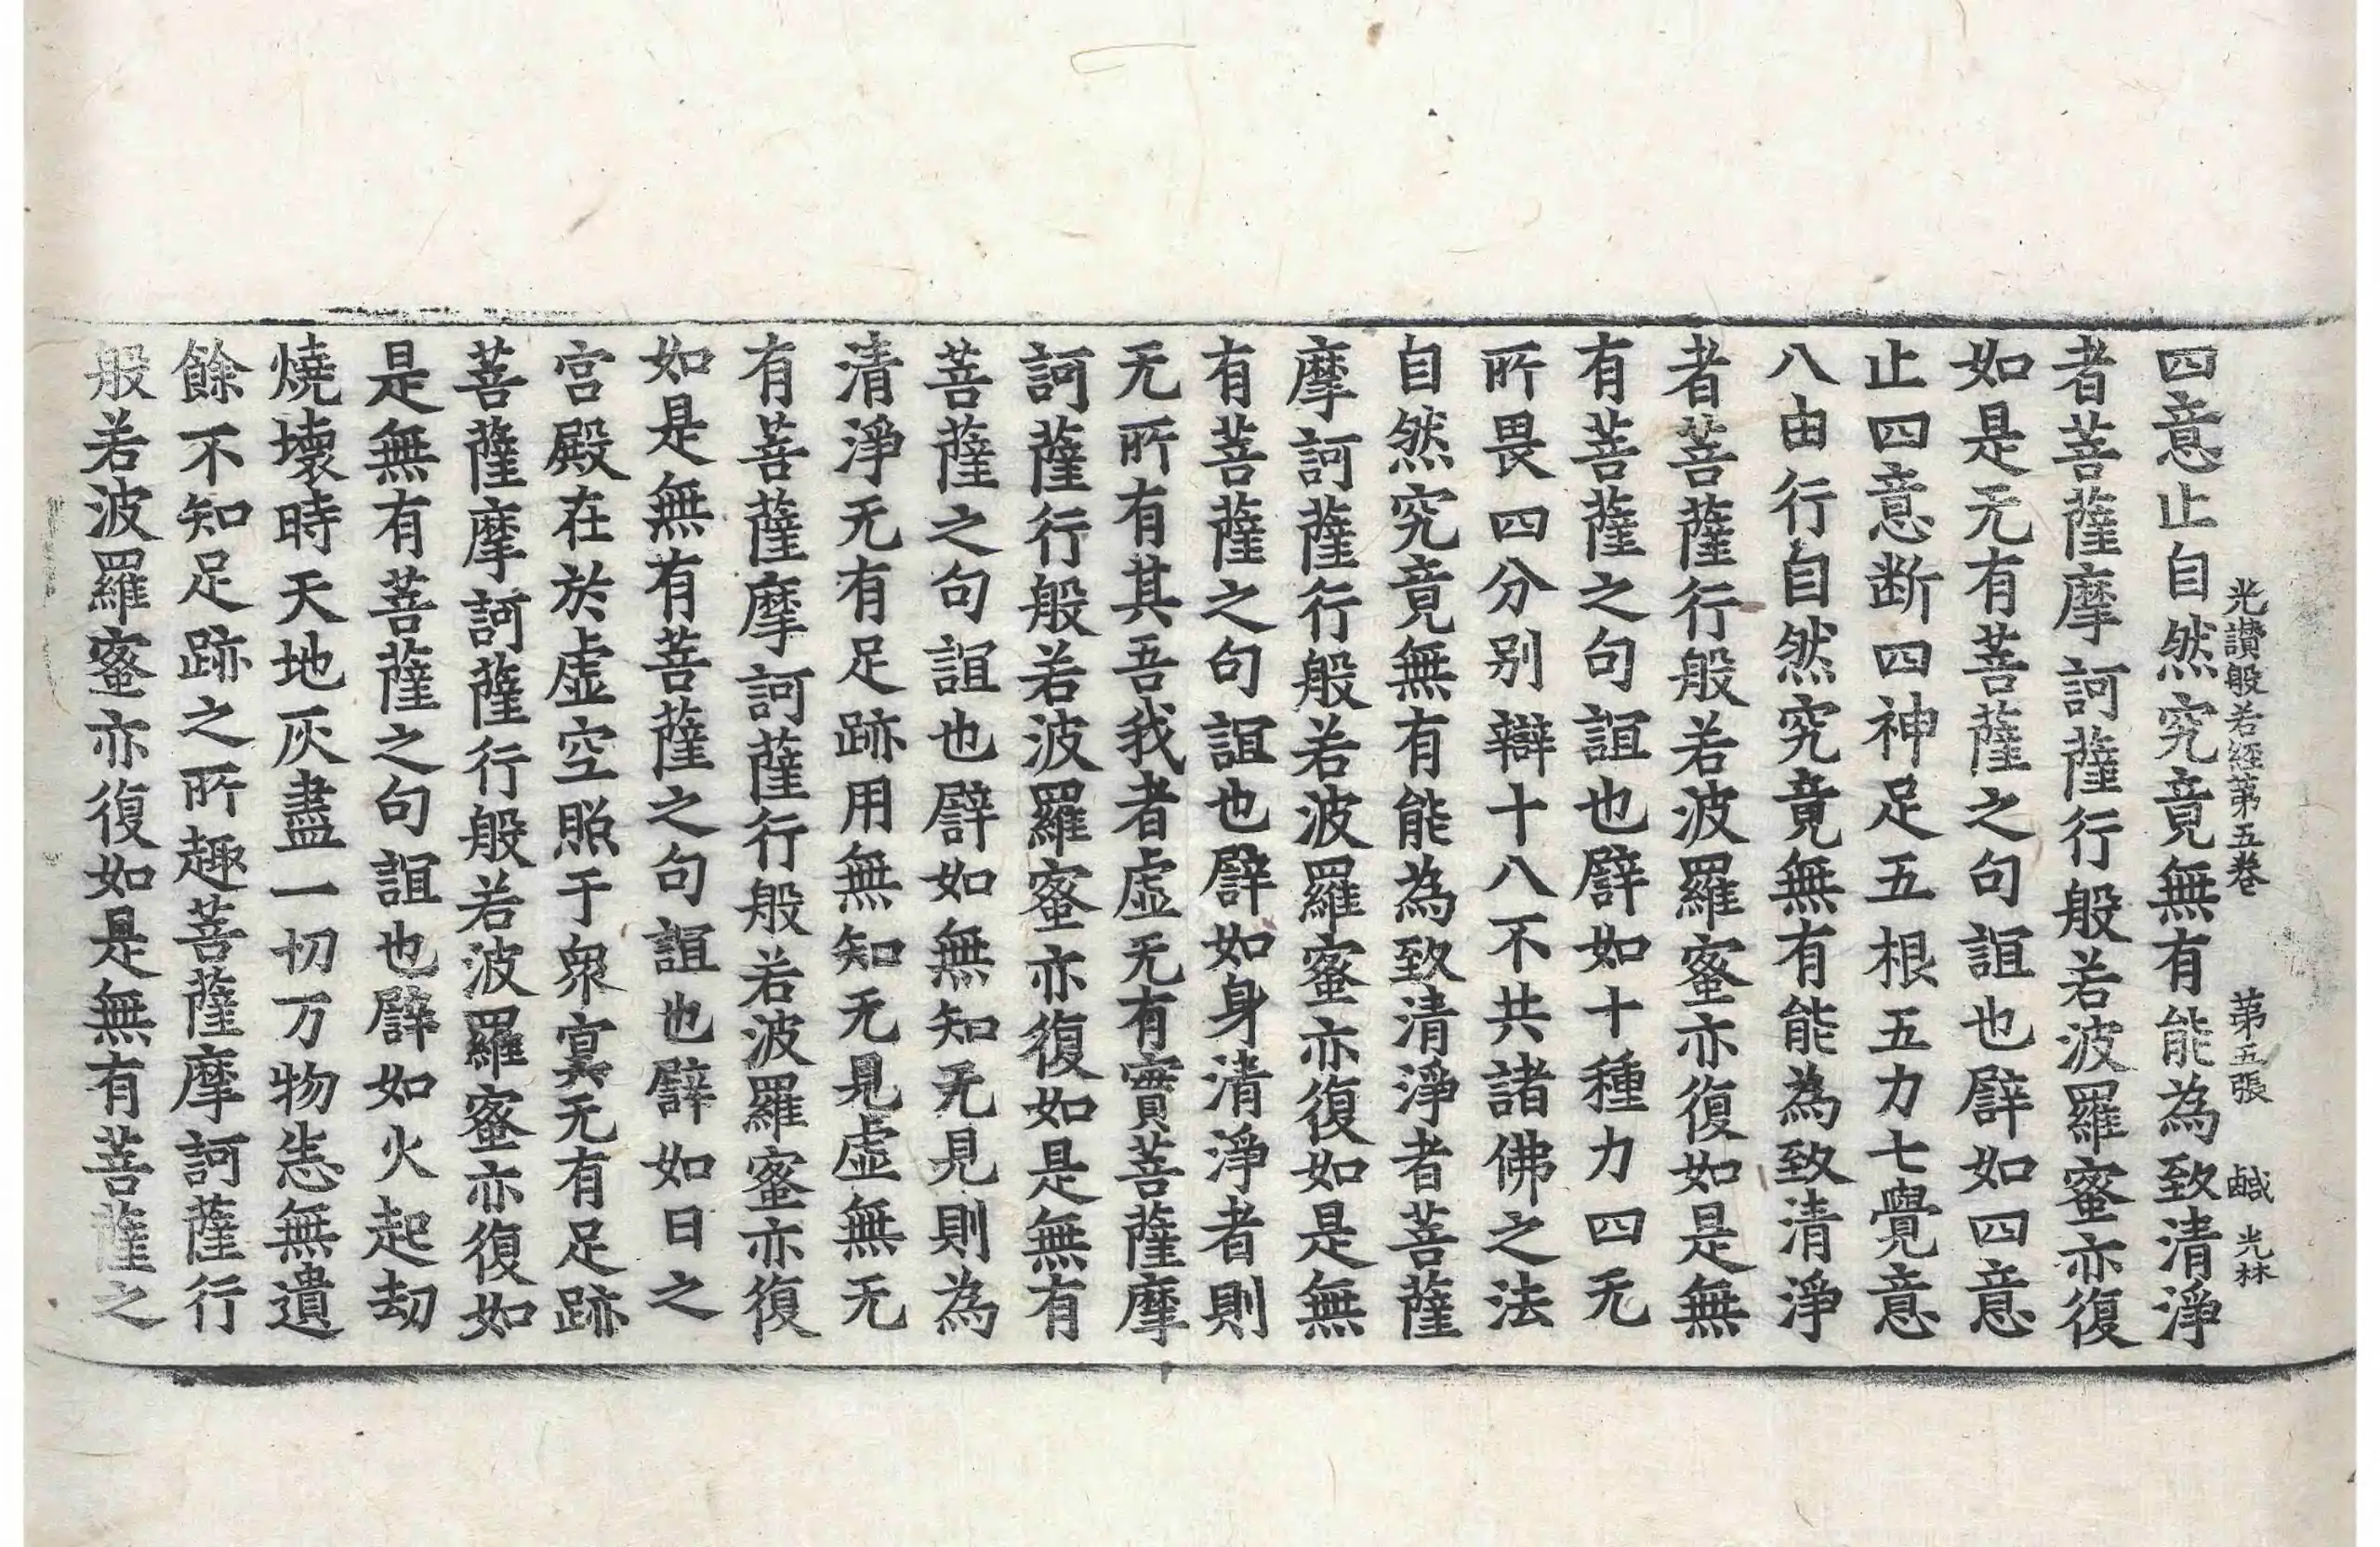 光讃般若經第五卷 第五張 鹹 光林
四意止自然究竟無有能為致清淨
者菩薩摩訶薩行般若波羅蜜亦復
如是无有菩薩之句誼也譬如四意
止四意断四神足五根五力七覺意
八由行自然究竟無有能為致清淨
者菩薩行般若波羅蜜亦復如是無
有菩薩之句誼也譬如十種力四无
所畏四分别辯十八不共諸佛之法
自然究竟無有能為致清淨者菩薩
摩訶薩行般若波羅蜜亦復如是無
有菩薩之句誼也譬如身清淨者則
无所有其吾我者虛无有實菩薩摩
訶薩行般若波羅蜜亦復如是無有
菩薩之句誼也譬如無知无見則為
清淨无有足跡用無知无見虛無无
有菩薩摩訶薩行般若波羅蜜亦復
如是無有菩薩之句誼也譬如日之
宮殿在於虛空照于衆冥无有足跡
菩薩摩訶薩行般若波羅蜜亦復如
是無有菩薩之句誼也譬如火起劫
燒壞時天地灰盡一切万物悉無遺
餘不知足跡之所趣菩薩摩訶薩行
般若波羅蜜亦復如是無有菩薩之